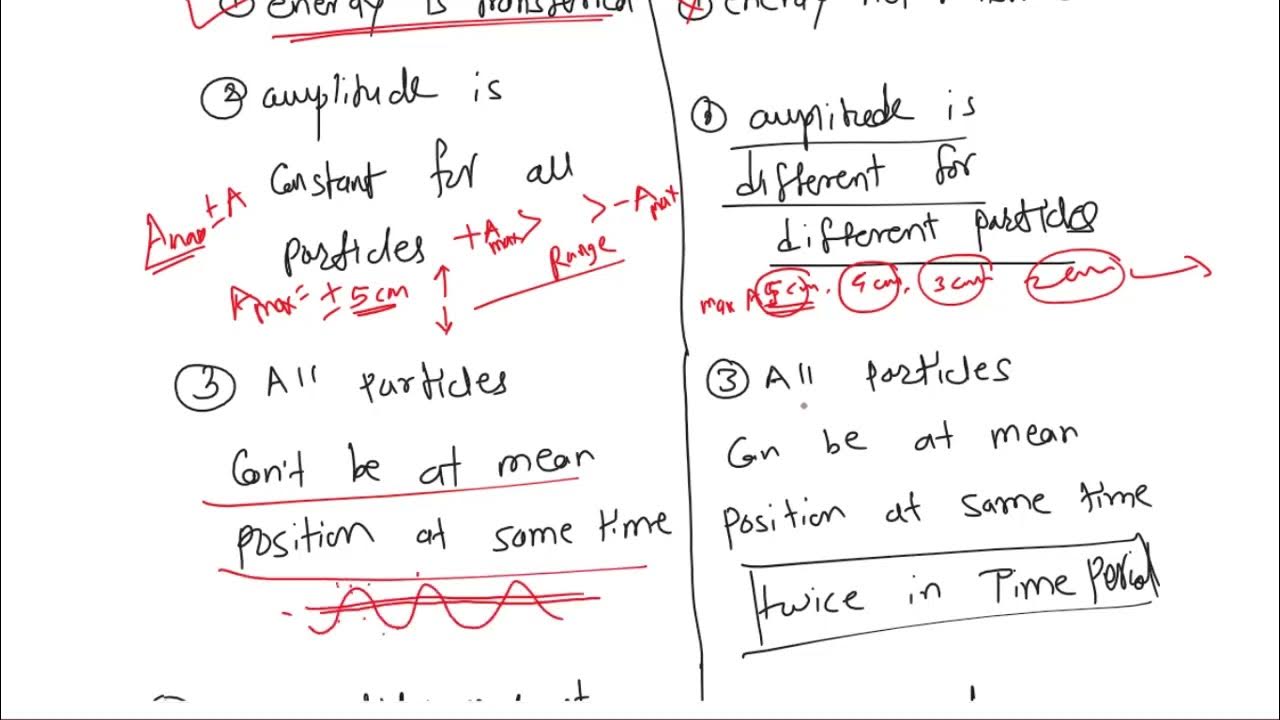 ① energy is transferred
② amplitude is
constant for all
particles
Amax ±A
+Amax > > -Amax
Range
Amax = ± 5 cm
③ All particles
Can't be at mean
position at same time
① amplitude is
different for
different particles
max A 5 cm, 4 cm, 3 cm 2 cm
③ All particles
Can be at mean
position at same time
twice in Time Period